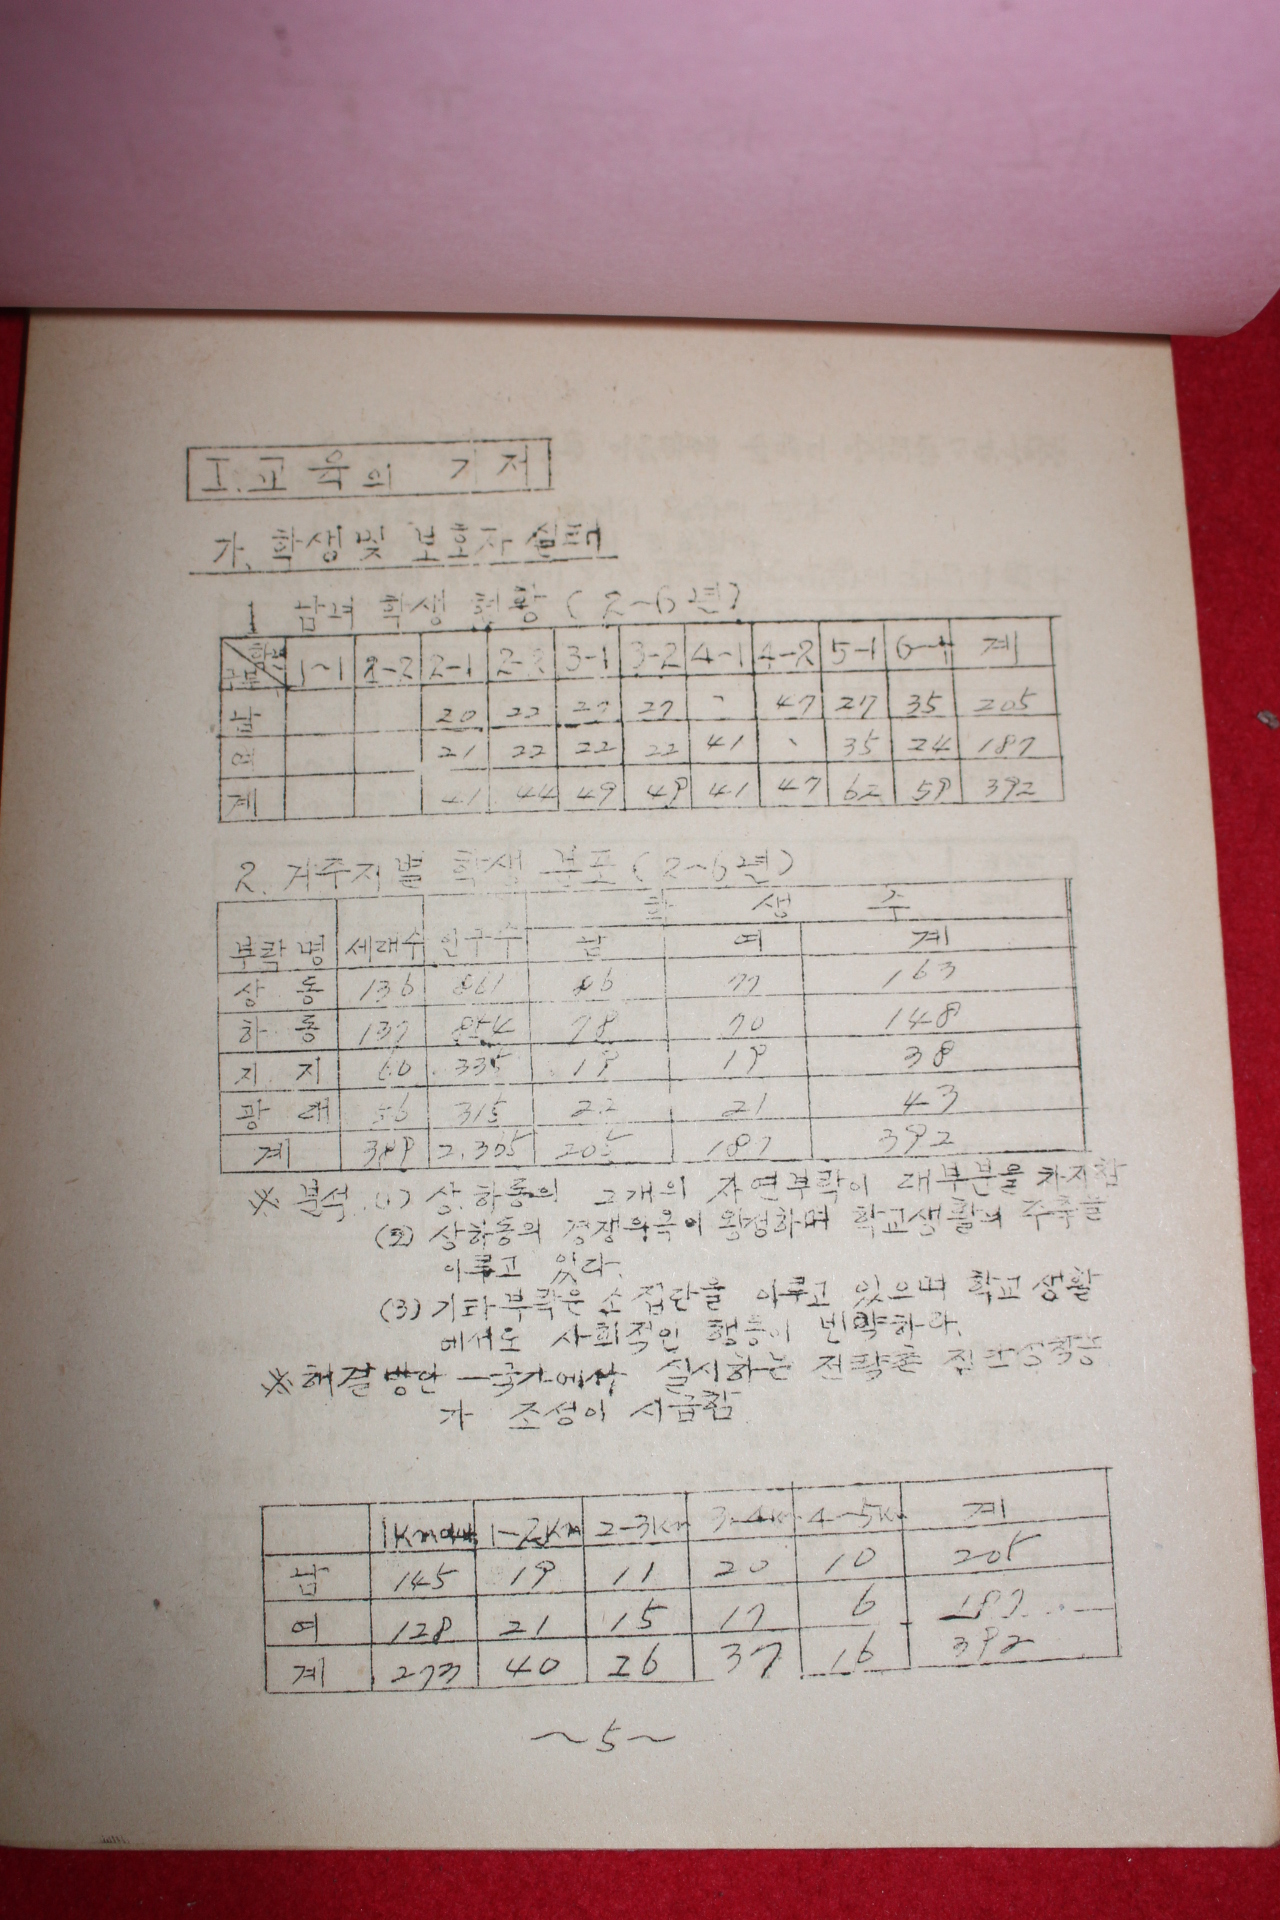 I. 교육의 기저
가. 학생및 보호자 실태
1 남녀 학생 현황 (2~6년)
1-1 2-2 2-1 2-2 3-1 3-2 4-1 4-2 5-1 6-1 계
남 20 22 27 27 - 47 27 35 205
여 21 22 22 22 41 - 35 24 187
계 41 44 49 49 41 47 62 59 392
2. 거주지별 학생 분포 (2~6년)
학 생 수
부락명 세대수 인구수 남 여 계
상 동 136 861 86 77 163
하 동 137 78 70 148
지 지 60 335 19 19 38
광 대 56 315 22 21 43
계 389 2.305 205 187 392
※ 분석 (1) 상.하동의 2개의 자연부락이 대부분을 차지함
(2) 상하동의 경쟁의욕이 왕성하며 학교생활의 주축을
이루고 있다.
(3) 기타부락은 소집단을 이루고 있으며 학교 생활
에서도 사회적인 행동이 빈약하다.
※ 해결방안 - 국가에서 실시하는 전략촌 집단정착농
가 조성이 시급함
1Km 1-2Km 2-3Km 3-4Km 4-5Km 계
남 145 19 11 20 10 205
여 128 21 15 17 6 187
계 273 40 26 37 16 392
~5~